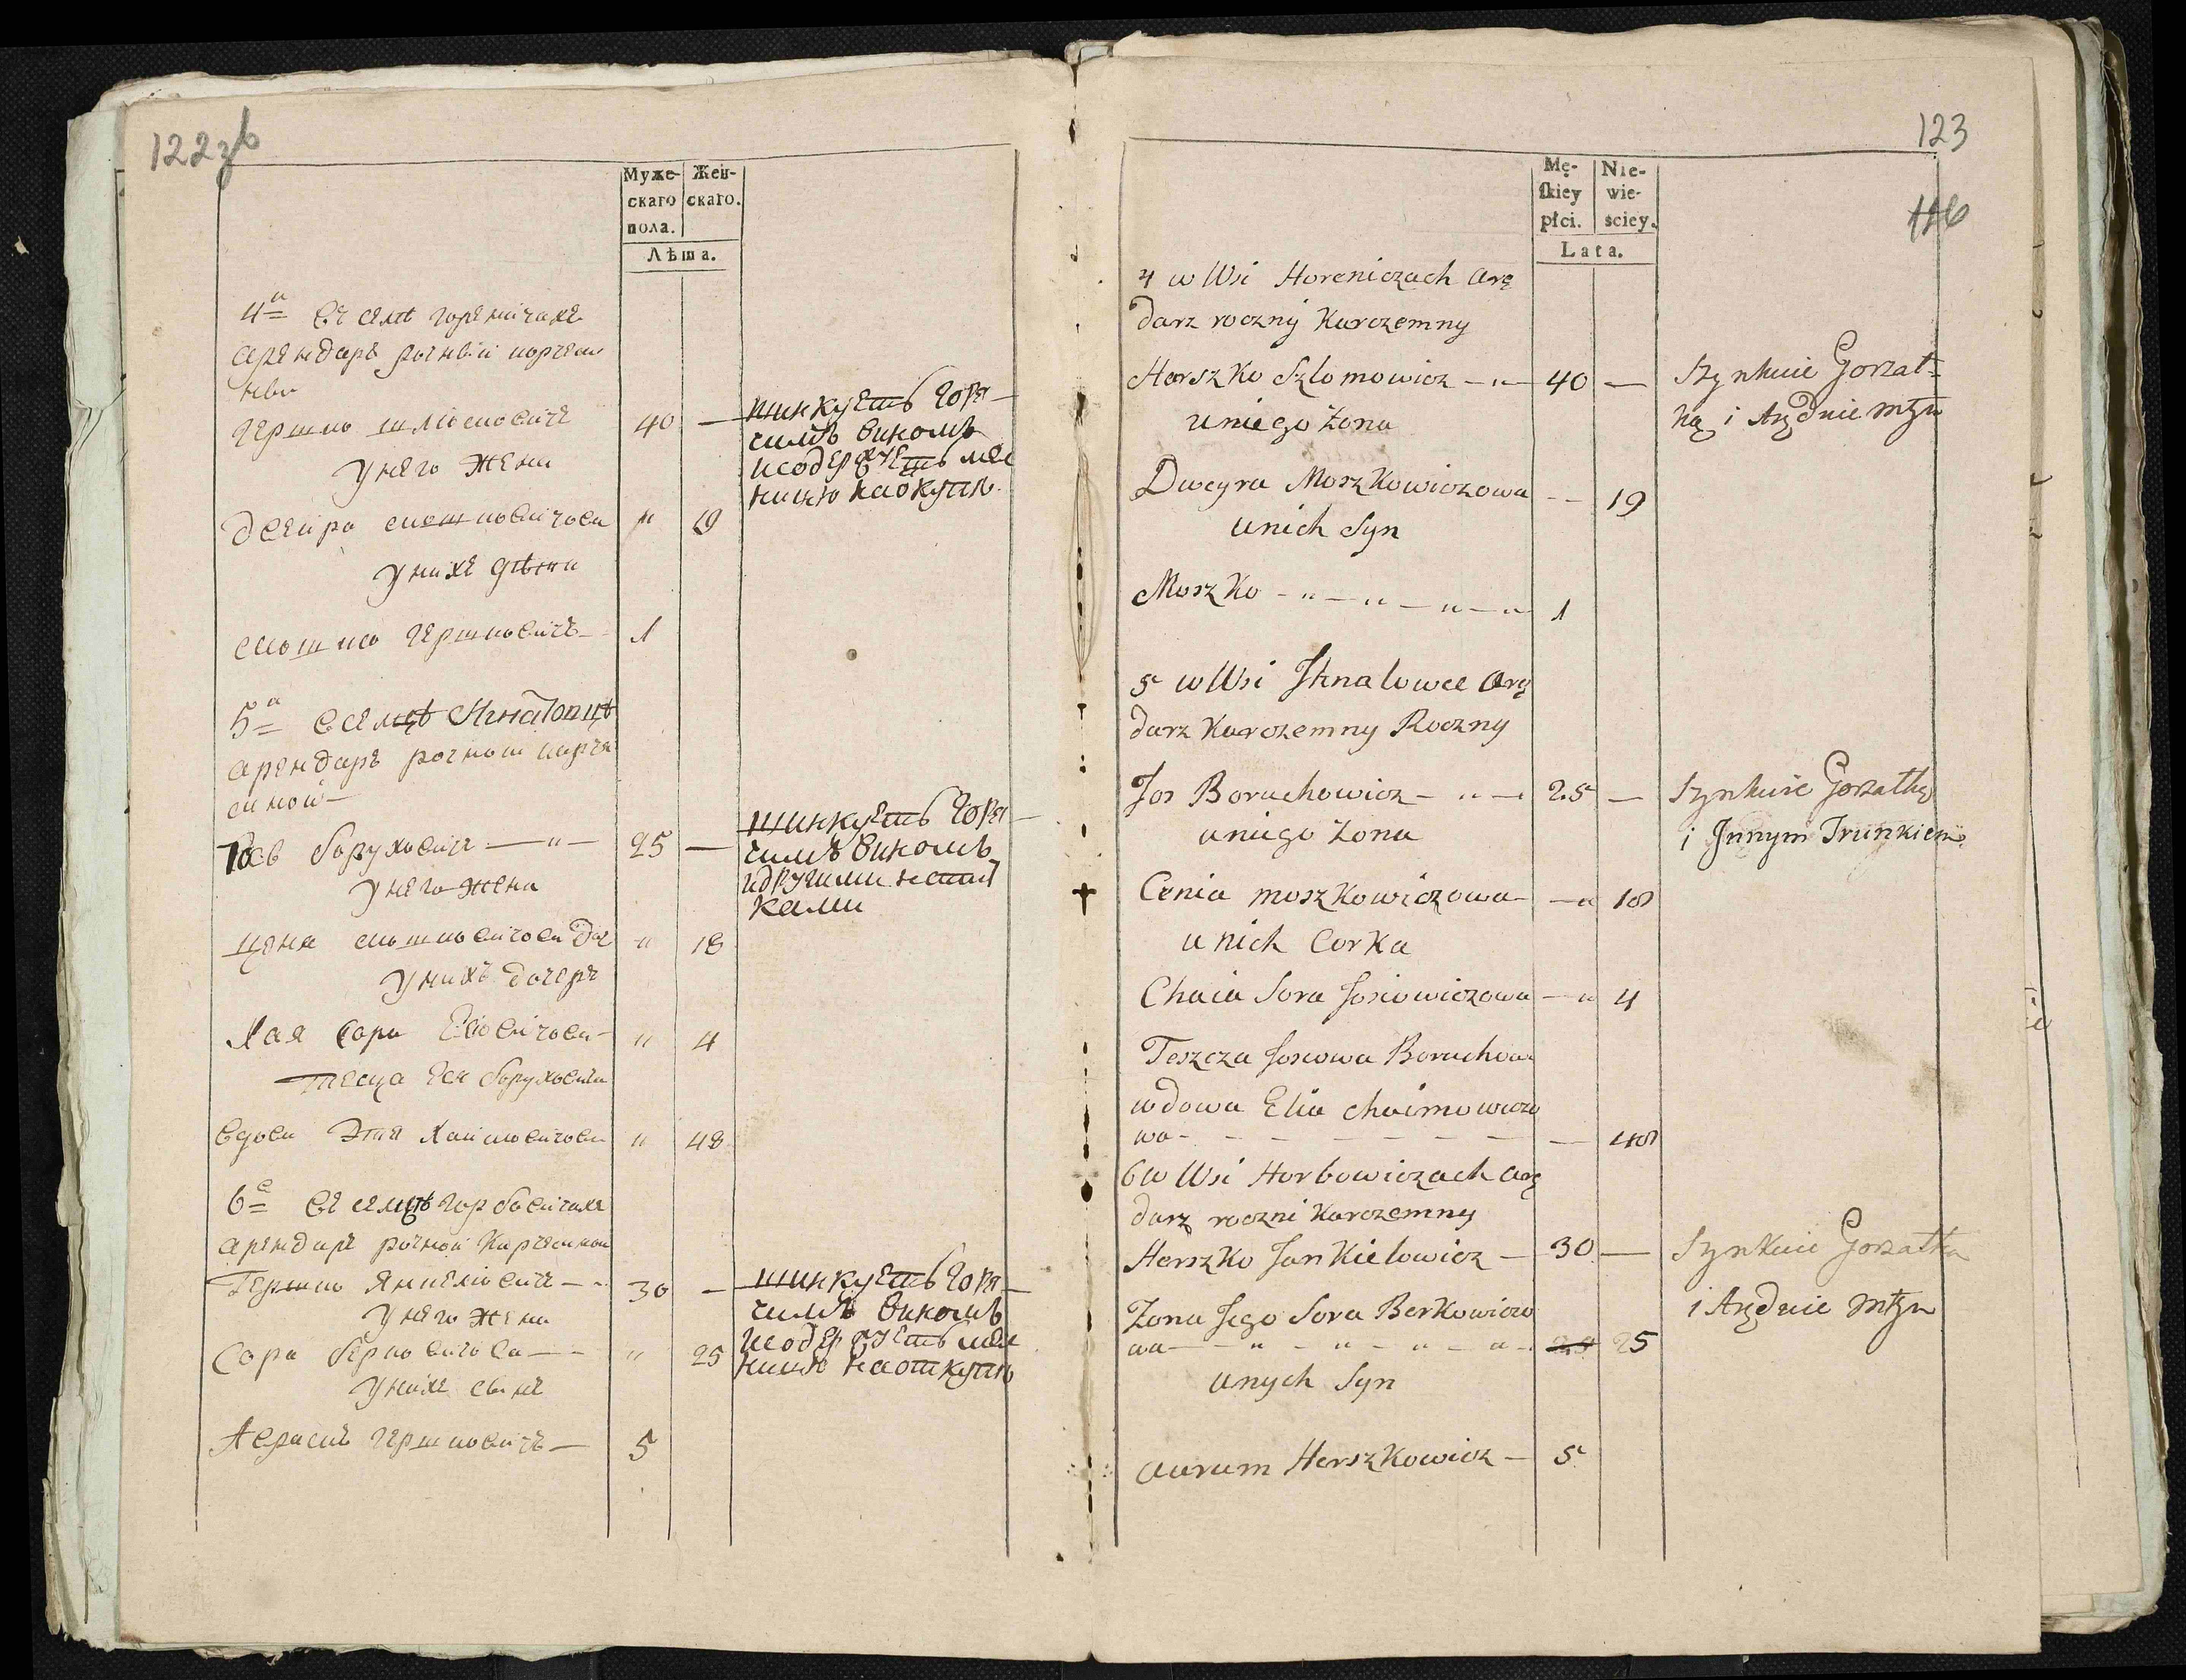 122зв
Муже-
скаго
пола.
Жен-
скаго.
Лѣта.
4я Въ селѣ горѣничахъ
арендаръ рочный корчем
ный
Гершко шліомовичъ 40 —
шинкуетъ горя-
чимъ виномъ
и содержуетъ мел
ницю на откупѣ
у него жена
Двейра мошковичова " 19
у нихъ дѣти
мошко гершковичъ — 1
5я в селѣ Игнатовцѣ
арендаръ рочной корче
мной —
Иосъ борухович — " — 25 —
шинкуетъ горя-
чимъ виномъ
и другими напит
ками
у него жена
Ценя мошковичова " 18
у нихъ дочеръ
Хая Сора " 4
тесца борухович
вдова Элія Хаимовичова " 48
6е въ селѣ горбовичахъ
арендаръ рочной корчемной
Гершко янкеліовичъ — 30 —
шинкуетъ горя-
чимъ виномъ
и содержуетъ мел
ницю на откупѣ
у него жена
Сора берковичова — " 25
у нихъ сынъ
Аврамъ гершковичъ — 5
123
116
Mę-
ſkiey
płci.
Nie-
wie-
ściey.
Lata.
4 w Wsi Horeniczach Arę
darz roczny Karczemny
Herszko Szlomowicz — " — 40 — Szynkuie Gorzał=
ką i Aręduie młyn
u niego Zona
Dweyra Moszkowiczowa - - 19
u nich Syn
Moszko - " — " — " — " 1
5 w Wsi Ihnatowce Arę
darz Karczemny Roczny
Jos Boruchowicz — " — 25 — Szynkuie Gorzałką
i Innym Trunkiem
u niego Zona
Cenia moszkowiczowa — " 18
u nich Corka
Chaia Sora Josiowiczowa — " 4
Teszcza Josiowa Boruchow
wdowa Elia Chaimowiczo
wa - - - - - - - — 48
6 w Wsi Horbowiczach arę
darz roczni Karczemny
Herszko Jankielowicz — 30 — Szynkuie Gorzałka
i Aręduie młyn
Zona Jego Sora Berkowiczo
wa — " - " - " - " - 25 25
u nych Syn
Auram Herszkowicz — 5